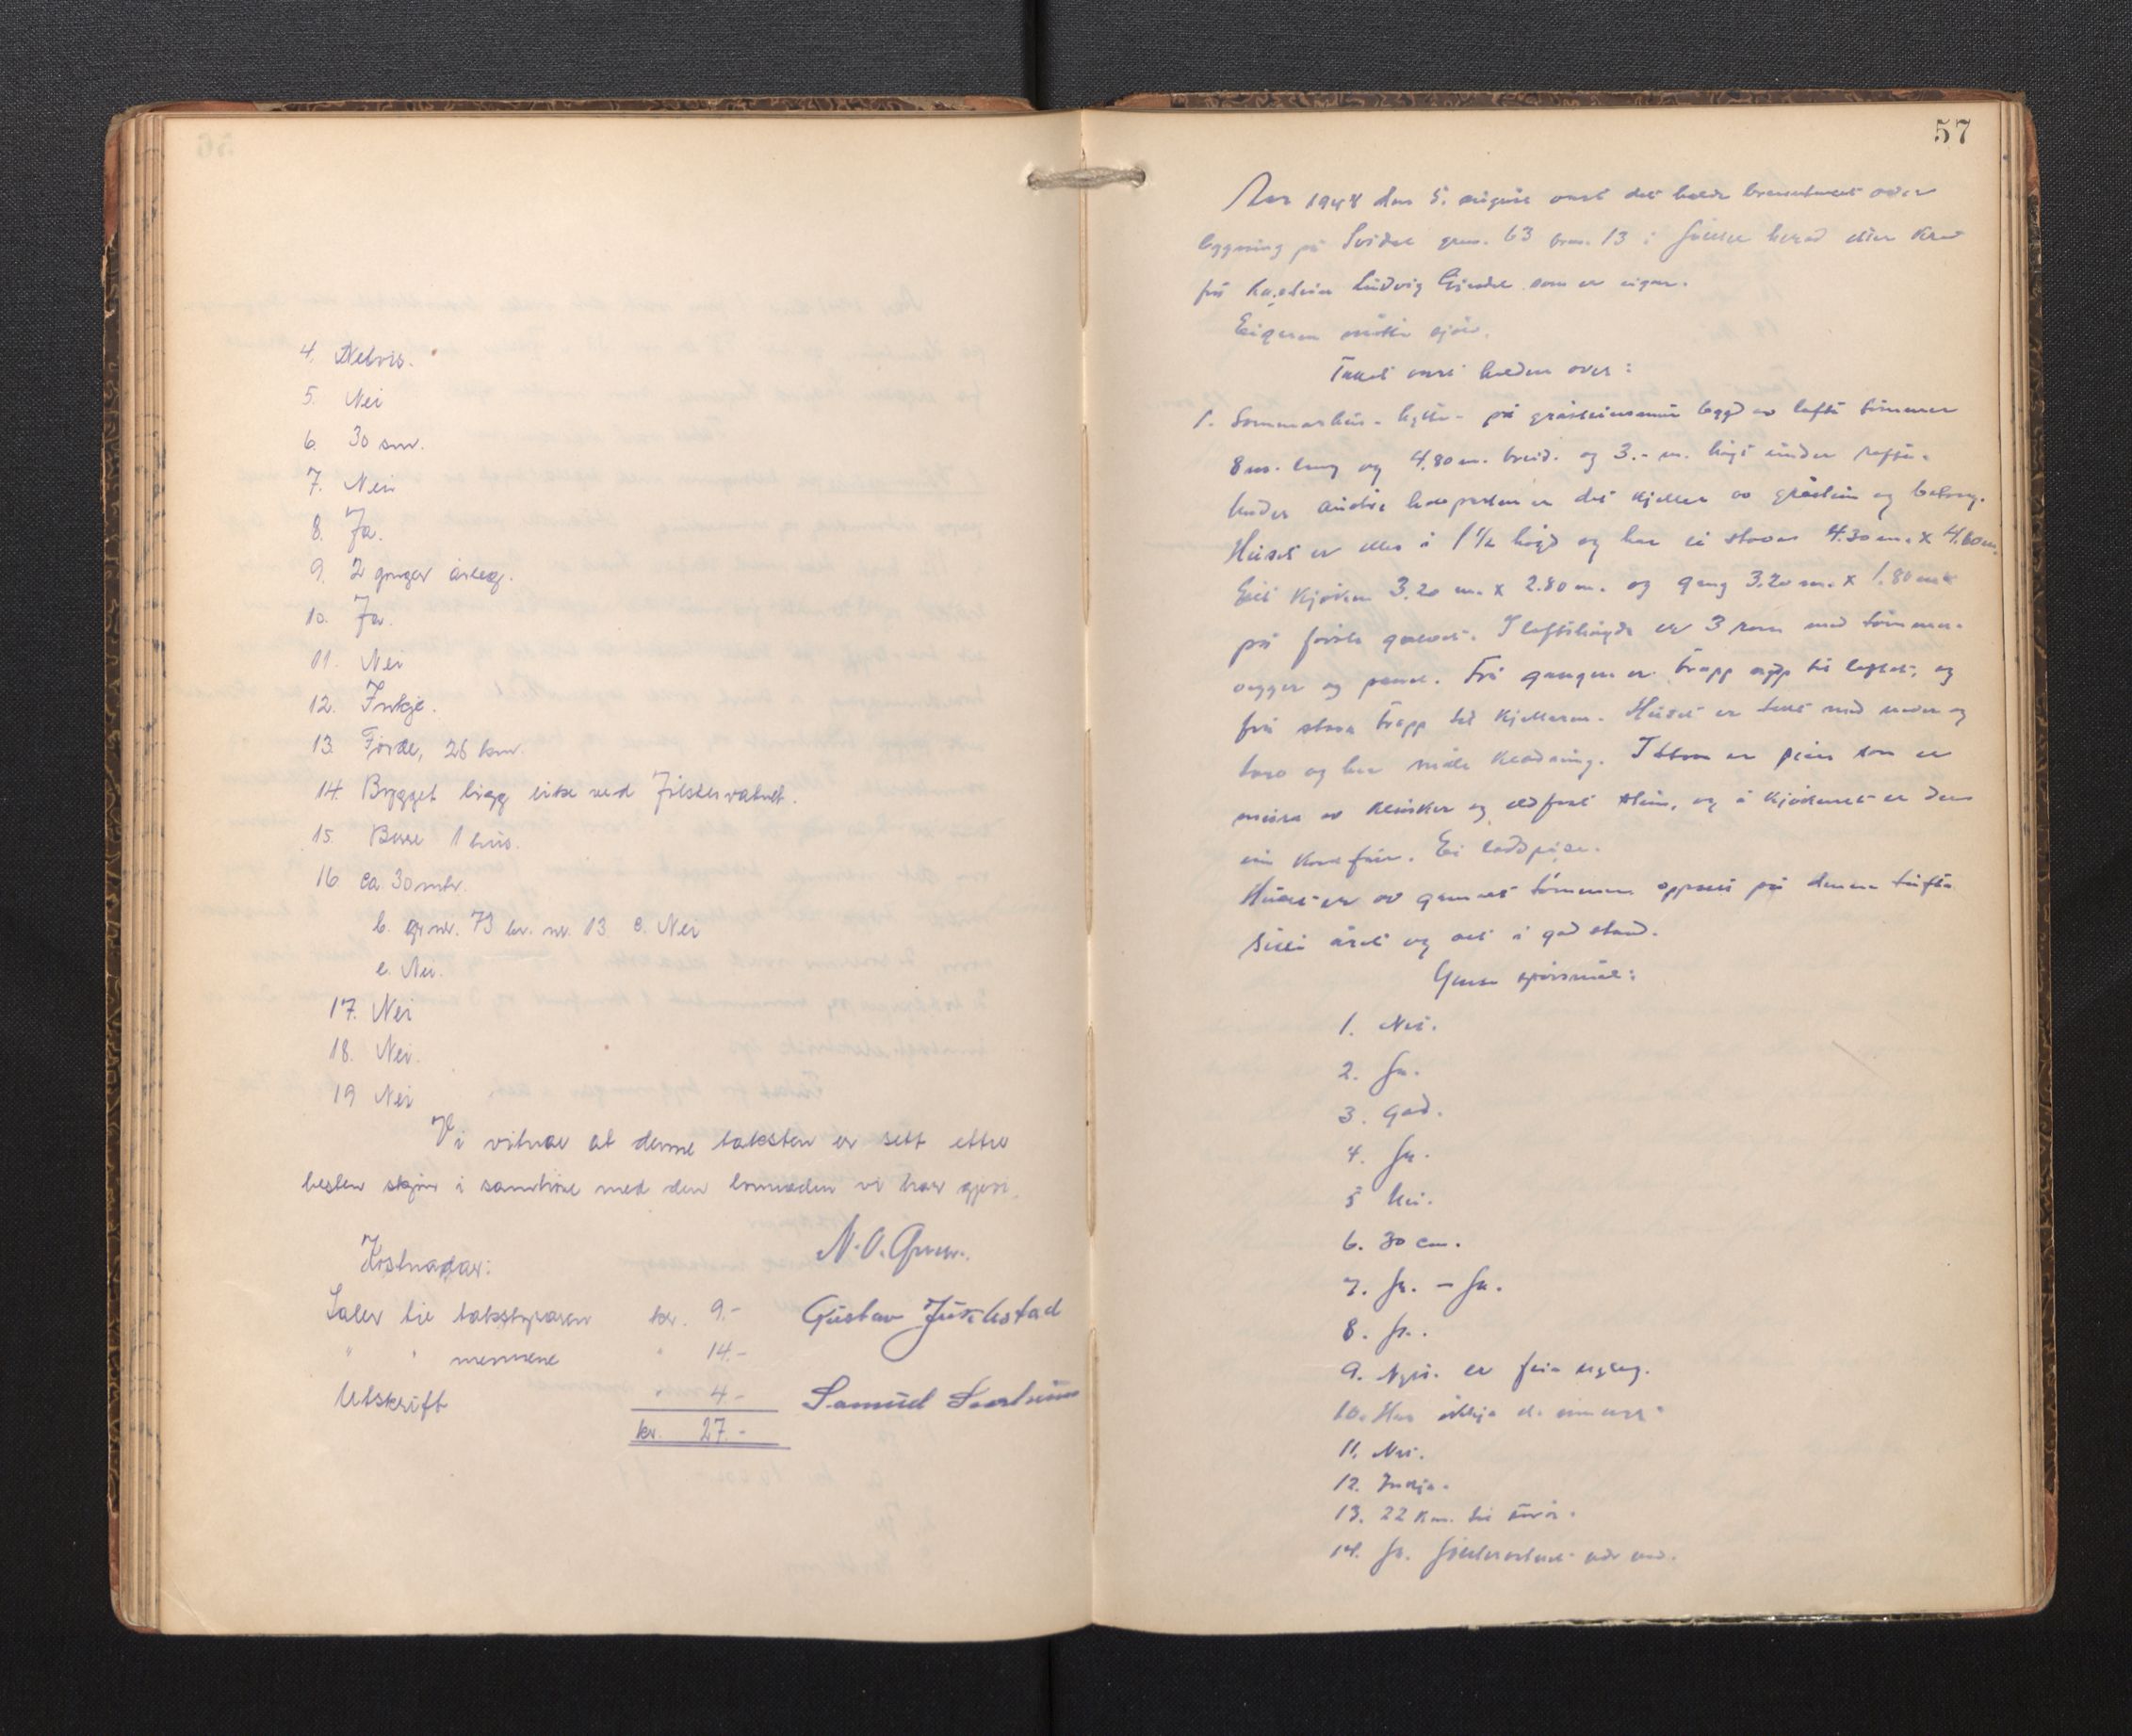 4. Delvis.
5. Nei
6. 30 sm.
7. Nei
8. Ja.
9. 2 gonger årleg.
10. Ja.
11. Nei
12. Inkje.
13. Førde, 26 km.
14. Bygget ligg ikke ved Jølstervatnet.
15. Bare 1 hus.
16. ca. 30 mtr.
b. gr.nr. 73 br. nr. 13 c. Nei
e. Nei.
17. Nei
18. Nei.
19 Nei
Vi vitnar at denne taksten er sett etter
besten skjøn i samhøve med den bruk vi har gjort.
N. O.
Kostnadar:
Salær til takstyraren kr. 9.-
Gustav
" " mennene " 14.-
Utskrift " 4.-
Samuel
kr. 27.-
57
Aar 1948 den 5. august vart det halde branntakst over
bygning på gnr. 63 bnr. 13 i Jølster herad etter krav
frå Ludvig som er eigar.
Eigaren møtte sjølv.
Takst vart halden over:
1. Sommarhus - hytte - på gråsteinsmur bygd av lafta tømmer
8 m. lang og 4.80 m. breid. og 3.- m. høgt under
Under er det kjellar av gråstein og betong.
Huset er elles i 1½ høgd og har ei stova 4.30 m. x 4.60 m.
Eit kjøken 3.20 m. x 2.80 m. og gang 3.20 m. x 1.80 m.
på første golvet. I loftshøgda er 3 rom med tømmer-
vegger og panel. Frå gangen er trapp opp til loftet, og
frå stova trapp til kjellaren. Huset er tekt med never og
torv og har kledning. I stova er peis som er
mura av klinker og eldfast stein, og i kjøkenet er den
ein komfur. Ei
Huset er av gamalt tømmer oppsett på denne tufta
siste året og alt i god stand.
spørsmål:
1. Nei.
2. Ja.
3. God.
4. Ja.
5 Nei.
6. 30 cm.
7. Ja. - Ja.
8. Ja.
9. Nytt. er
10. Har ikkje
11. Nei.
12. Inkje.
13. 22 km. til
14. Ja. Jølstervatnet